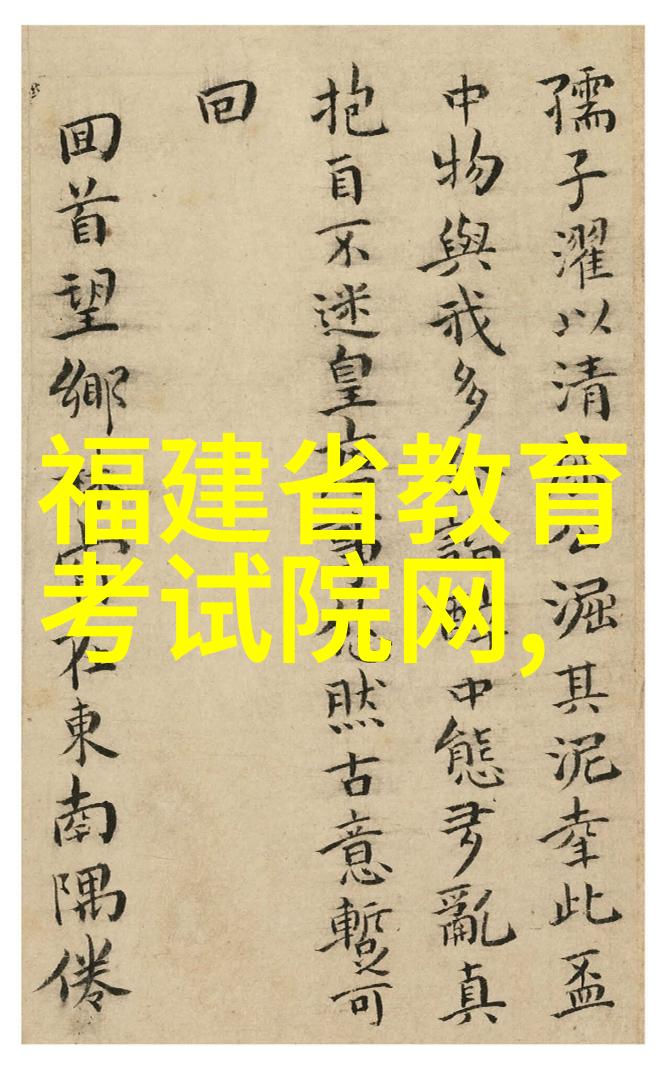 孺子濯以清淈其泥奉此盃
中物與我多中態多亂真
抱自不迷皇然古意暫可
回
回首望鄉在東南隅倦
福建省教育
考试院网,